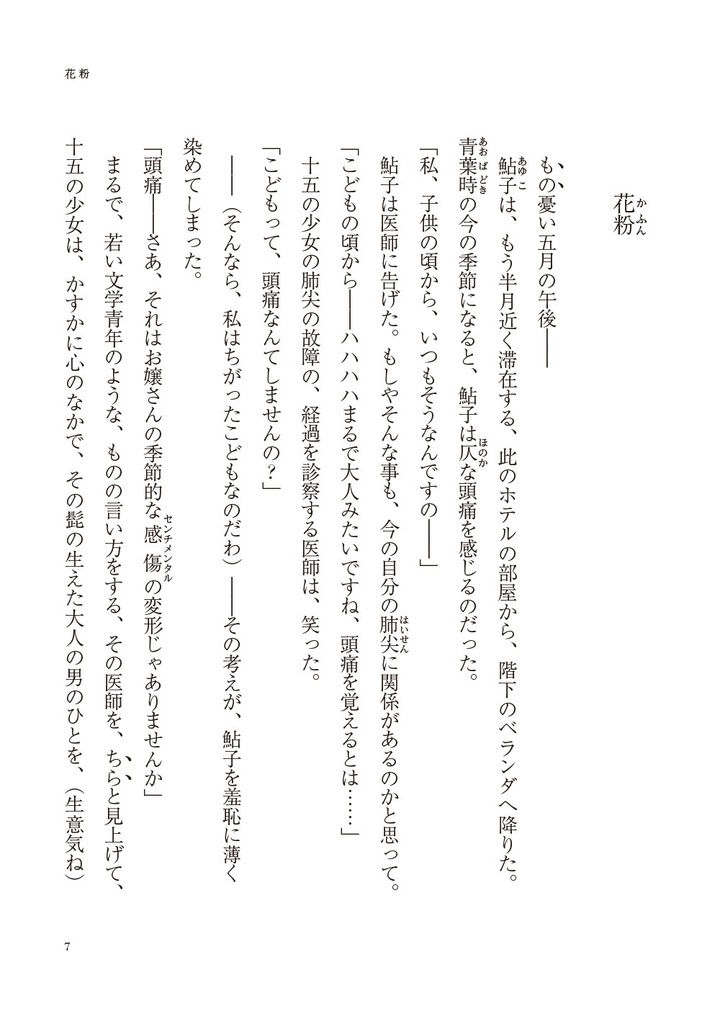 花粉
花粉
かふん
もの憂い五月の午後――
鮎子は、もう半月近く滞在する、此のホテルの部屋から、階下のベランダへ降りた。
あゆこ
青葉時の今の季節になると、鮎子は仄な頭痛を感じるのだった。
あおばどき
ほのか
「私、子供の頃から、いつもそうなんですの――」
鮎子は医師に告げた。もしやそんな事も、今の自分の肺尖に関係があるのかと思って。
はいせん
「こどもの頃から――ハハハハまるで大人みたいですね、頭痛を覚えるとは……」
十五の少女の肺尖の故障の、経過を診察する医師は、笑った。
「こどもって、頭痛なんてしませんの?」
――（そんなら、私はちがったこどもなのだわ）――その考えが、鮎子を羞恥に薄く
染めてしまった。
「頭痛――さあ、それはお嬢さんの季節的な感傷の変形じゃありませんか」
センチメンタル
まるで、若い文学青年のような、ものの言い方をする、その医師を、ちらと見上げて、
十五の少女は、かすかに心のなかで、その髭の生えた大人の男のひとを、（生意気ね）
7